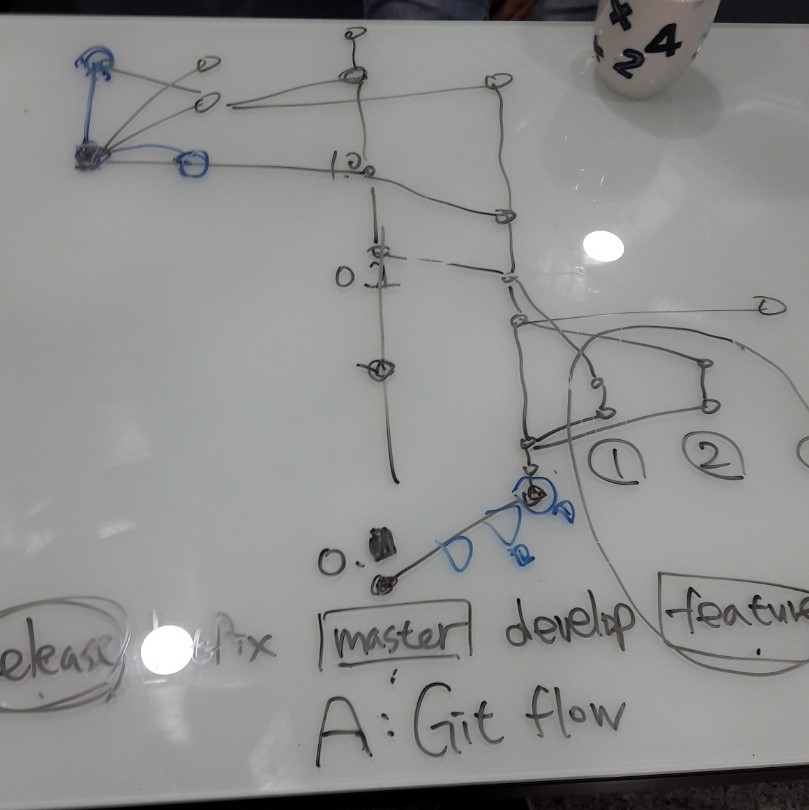 4
2
1.0
0.1
1
2
0.
elease hotfix master develop feature
A: Git flow